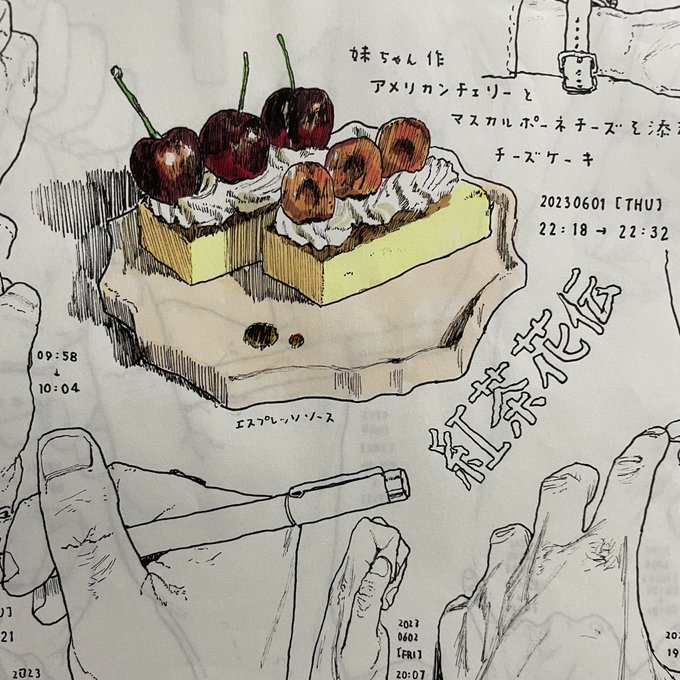 妹ちゃん作
アメリカンチェリーと
マスカルポーネチーズを添え
チーズケーキ
20230601 [THU]
22:18 → 22:32
紅茶花伝
エスプレッソソース
09:58
↓
10:04
21
2023
2023
0602
[FRI]
20:07
19